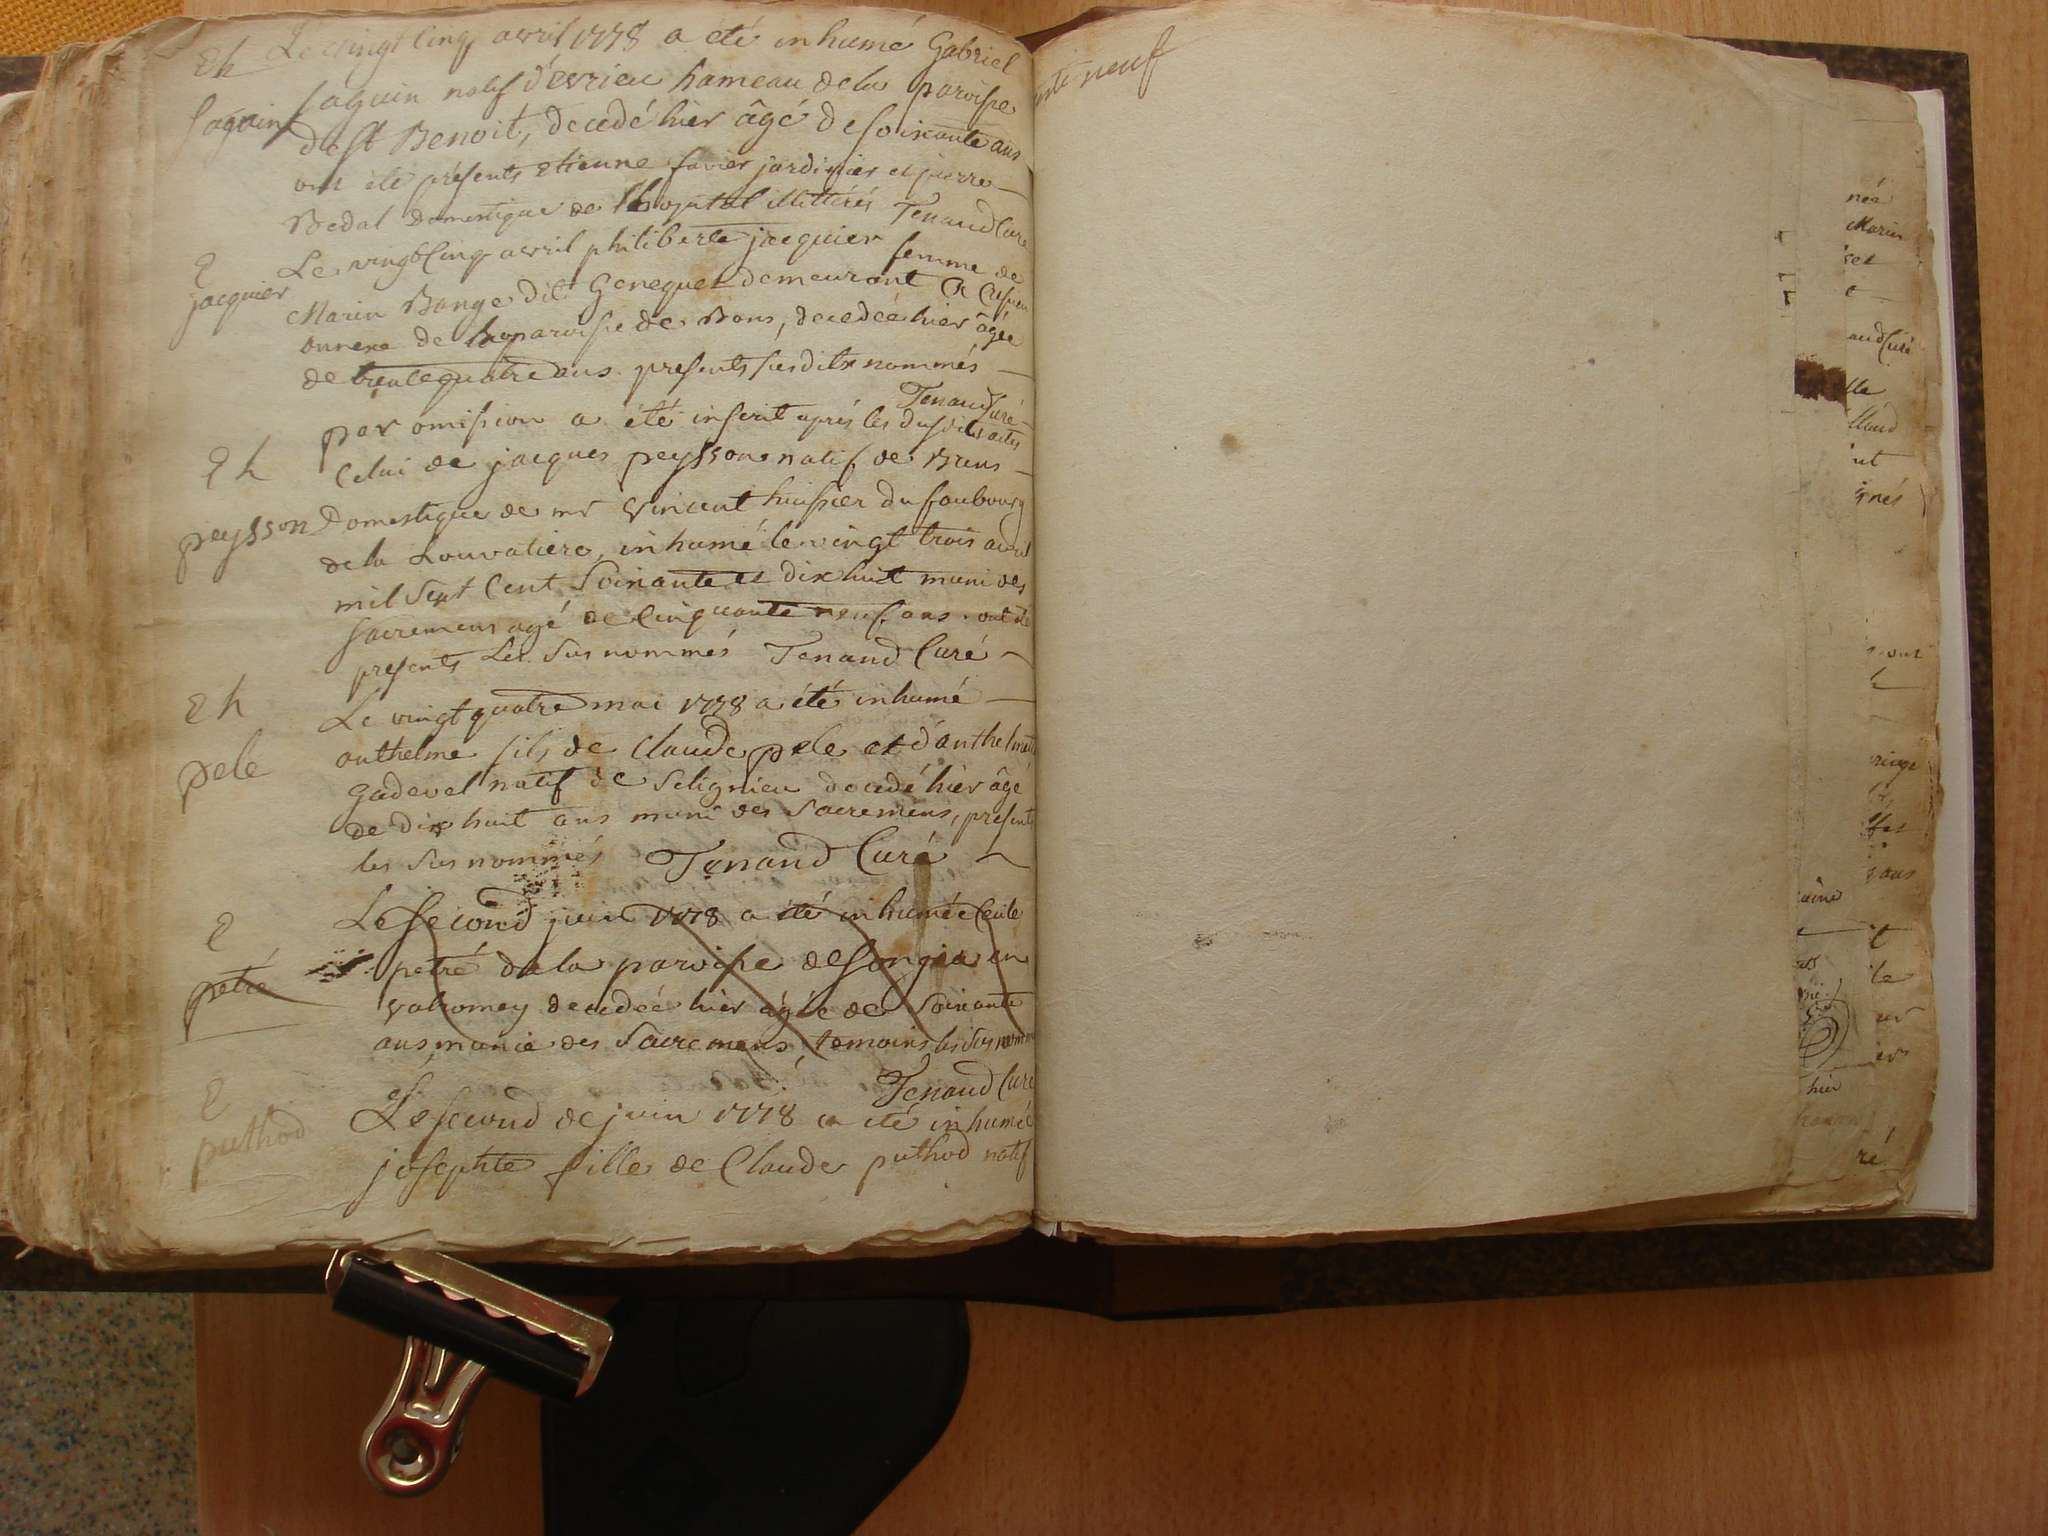 Eh Le vingt cinq avril 1778 a été inhumé Gabriel
saguin saguin natif d'evrieu hameau de la paroisse
de st Benoit, decedé hier âgé de soixante ans
ont été présents etienne favier jardinier et pierre
Bedal domestique de lhopital illitterés Tenand Curé
E Le vingt cinq avril philiberte jacquier femme de
jacquier Marin Bange dit Genequet demeurant a
annexe de la paroisse de Bons, decedée hier âgée
de trente quatre ans. presents susdits nommés
Tenand Curé
par omission a été inscrit aprés les dusdits actes
Eh Celui de jacques peysson natif de Brens
peysson Domestique de mr Vincent huissier du faubourg
de la Louvatiere, inhumé le vingt trois avril
mil Sept Cent Soixante et dix huit muni des
sacremens agé de Cinquante neuf ans. ont été
presents Les Sus nommés Tenand Curé
Eh Le vingt quatre mai 1778 a été inhumé
pele anthelme fils de Claude pele et d'anthelmette
Gadevel natif de Selignieu decedé hier âgé
de dix huit ans muni des Sacremens, presents
les Sus nommés Tenand Curé
E Le Second juin 1778 a été inhumée
petré petré de la paroisse de Songieu en
valromey decedée hier âgée de Soixante
ans munie des Sacremens, temoins les Sus nommés
Tenand Curé
E Le second de juin 1778 a été inhumée
puthod josephte fille de Claude puthod natif
neuf
née
Marin
and Curé
hier